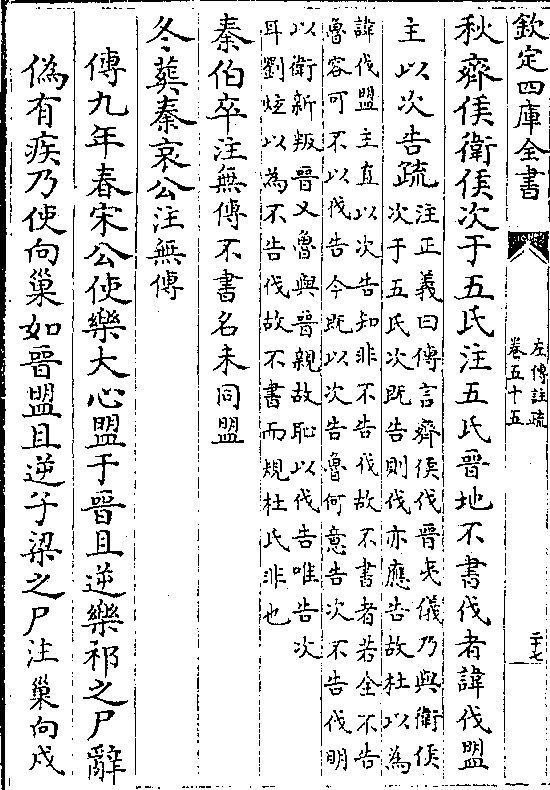 欽定四庫全書
左傳註疏
卷五十五
二十七
秋齊侯衛侯次于五氏注五氏晉地不書伐者諱伐盟
主以次告疏
注正義曰傳言齊侯伐晉夷儀乃與衛侯
次于五氏次既告則伐亦應告故杜以為
諱伐盟主直以次告知非不告伐故不書者若全不告
魯容可不以伐告今既以次告魯何意告次不告伐明
以衛新叛晉又魯與晉親故恥以伐告唯告次
耳劉炫以為不告伐故不書而規杜氏非也
秦伯卒注無傳不書名未同盟
冬葬秦哀公注無傳
傳九年春宋公使樂大心盟于晉且逆樂祁之尸辭
偽有疾乃使向巢如晉盟且逆子梁之尸注巢向戌